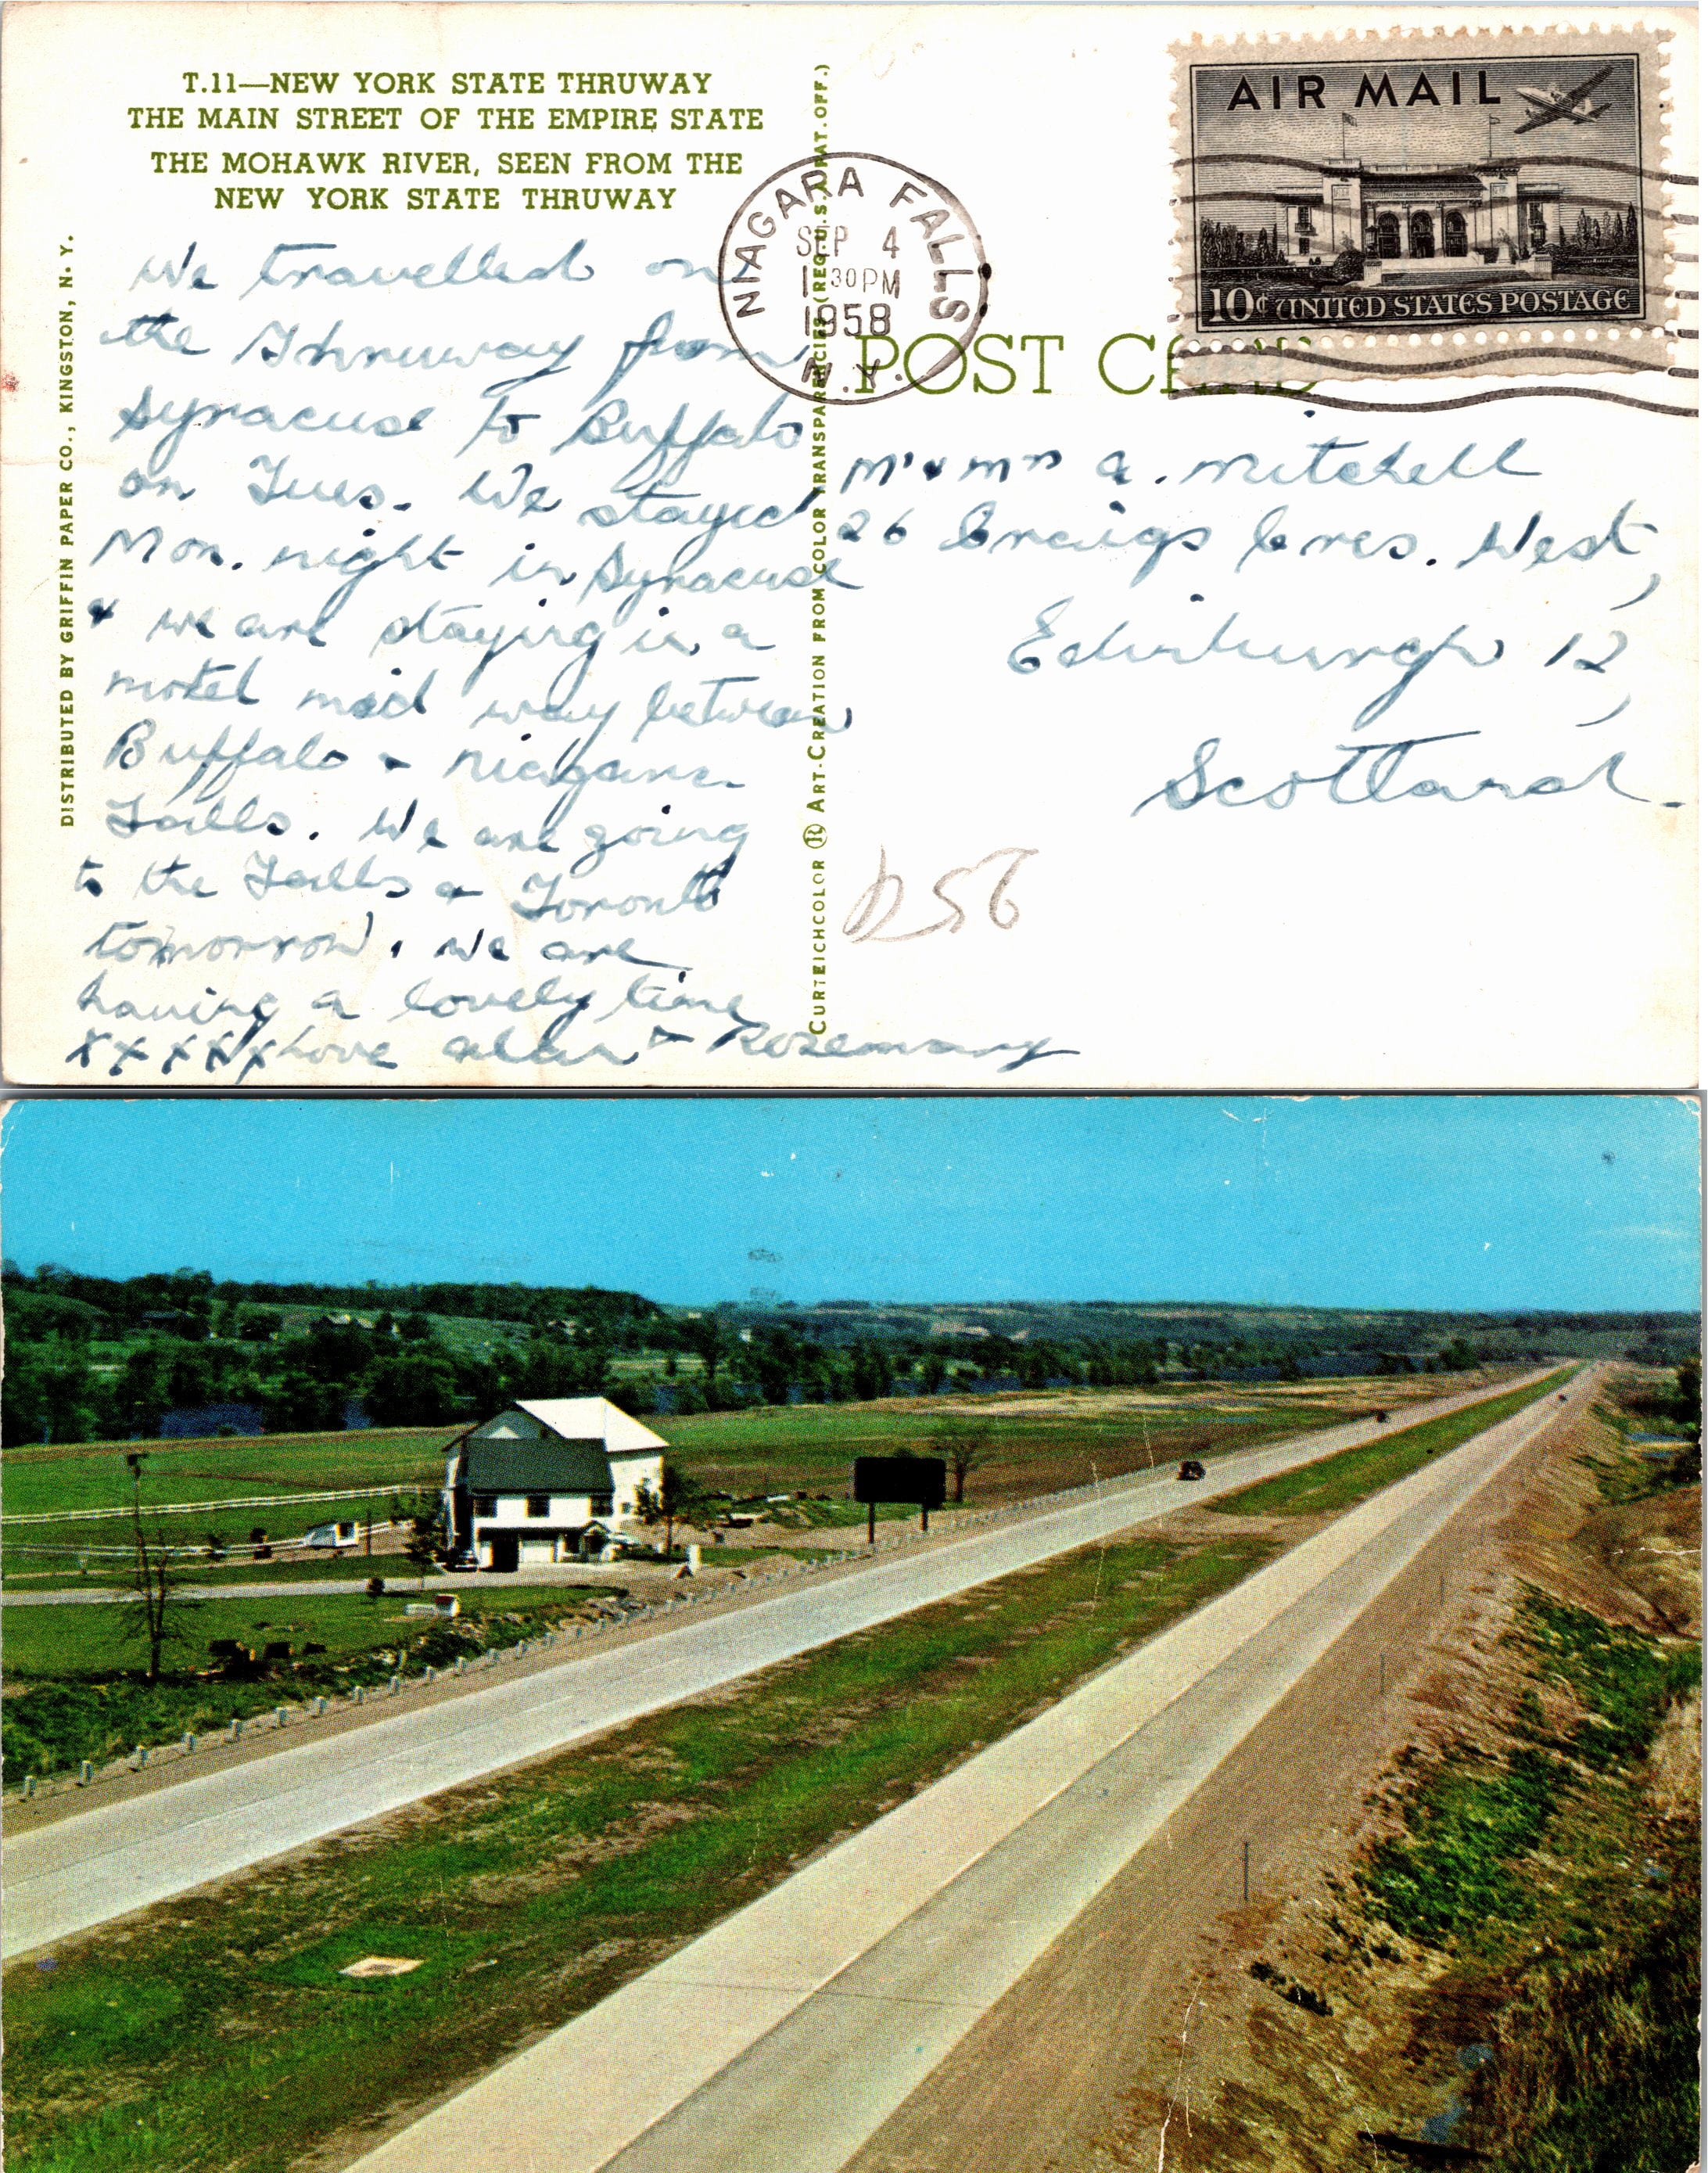 T.11—NEW YORK STATE THRUWAY
THE MAIN STREET OF THE EMPIRE STATE
THE MOHAWK RIVER, SEEN FROM THE
NEW YORK STATE THRUWAY
DISTRIBUTED BY GRIFFIN PAPER CO., KINGSTON, N. Y.
We travelled on
the Thruway from
Syracuse to Buffalo
on Tues. We stayed
Mon. night in Syracuse
& we are staying in a
motel mid way between
Buffalo & Niagara
Falls. We are going
to the Falls & Toronto
tomorrow. We are
having a lovely time
xxxxxx Love Alan & Rosemary
CURTEICHCOLOR ® ART-CREATION FROM COLOR TRANSPARENCIES (REG. U.S. PAT. OFF.)
NIAGARA FALLS
SEP 4
30 PM
1958
N.Y.
AIR MAIL
10¢ UNITED STATES POSTAGE
POST CARD
Mr & Mrs A. Mitchell
26 Craigs Cres. West,
Edinburgh 12,
Scotland.